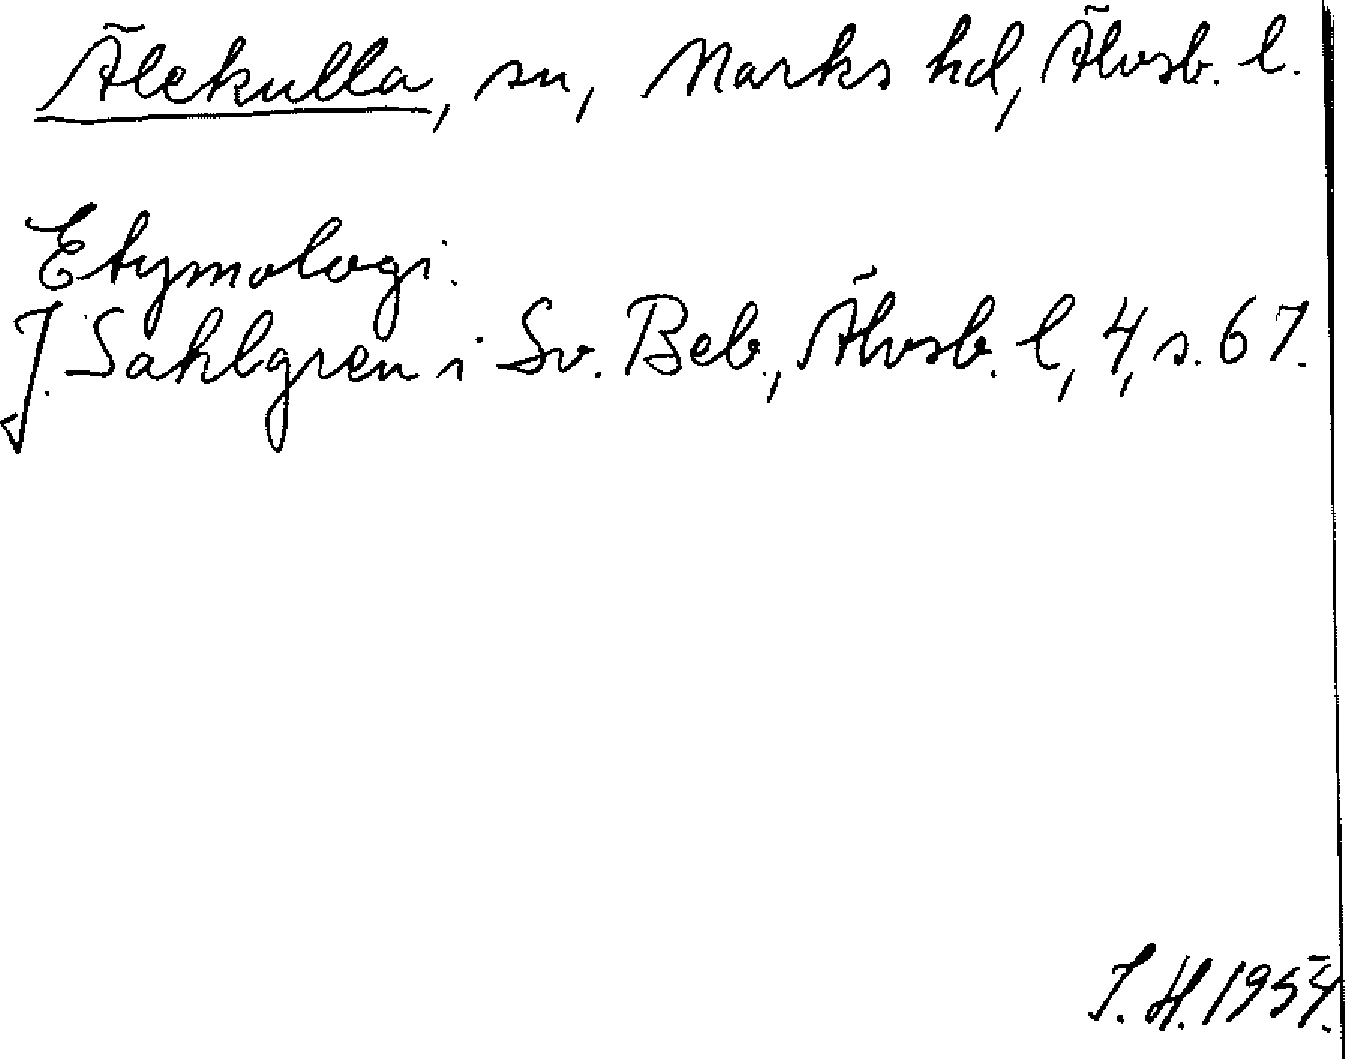 Älekulla, sn, Marks hd, Älvsb. l.
Etymologi.
J. Sahlgren i Sv. Beb., Älvsb. l, 4, s. 67.
I. H. 1954.